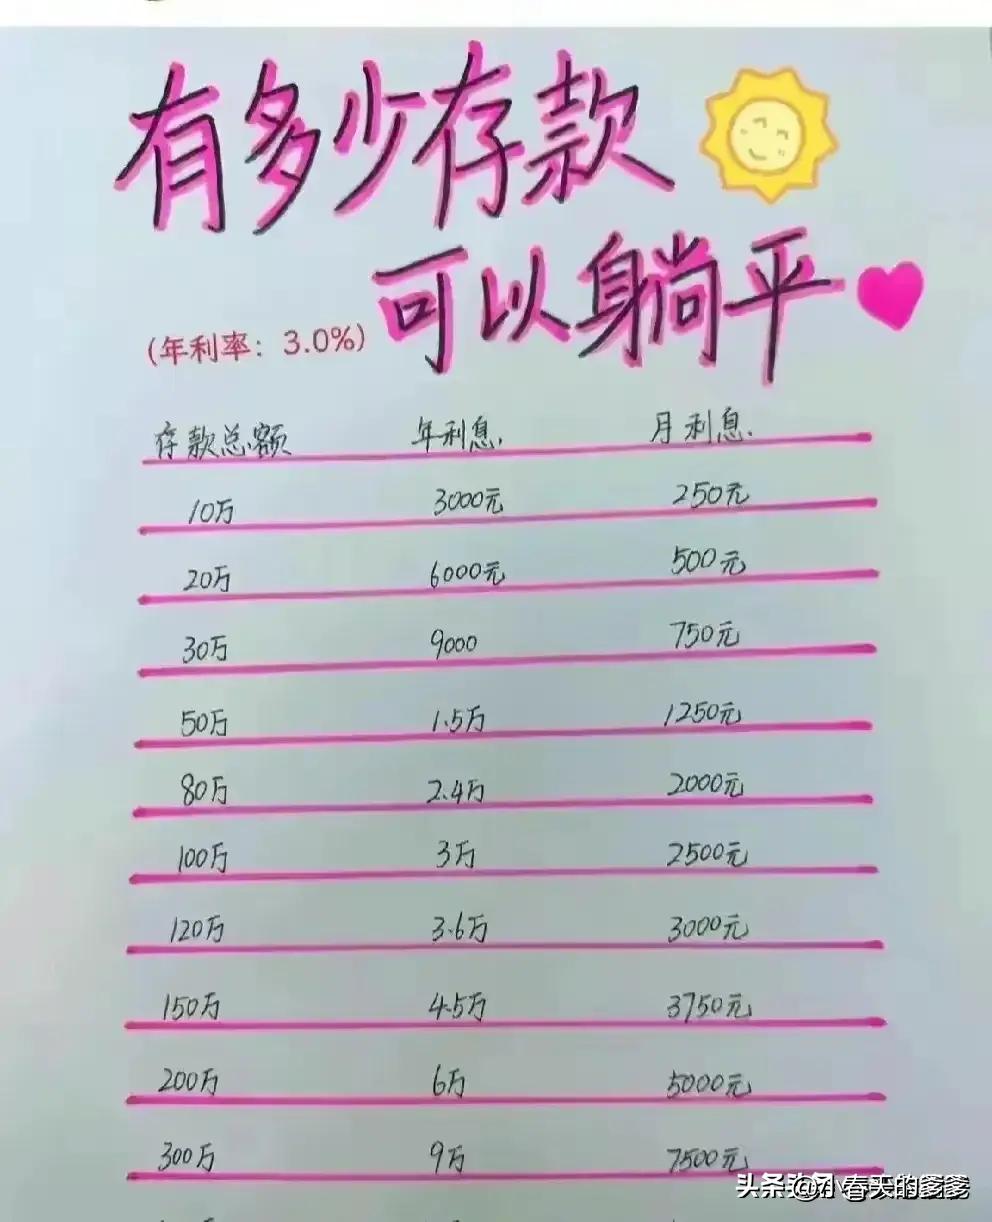 有多少存款
可以躺平
(年利率：3.0%)
存款总额 年利息. 月利息.
10万 3000元 250元
20万 6000元 500元
30万 9000 750元
50万 1.5万 1250元
80万 2.4万 2000元
100万 3万 2500元
120万 3.6万 3000元
150万 4.5万 3750元
200万 6万 5000元
300万 9万 7500元
头条 @小春天的爹爹